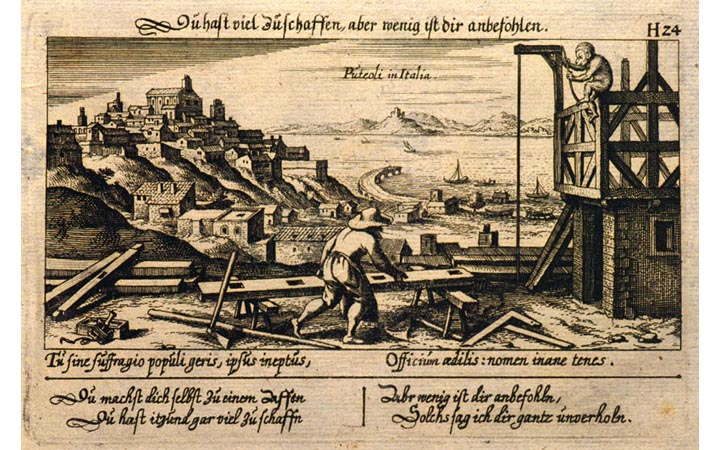 Du hast viel Zu schaffen, aber wenig ist dir anbefohlen.
H24
Puteoli in Italia.
Tu sine suffragio populi geris, ipsus ineptus,
Officium ædilis: nomen inane tenes.
Du machst dich selbst Zu einem Affen
Du hast itzund gar viel Zu schaffn
Aber wenig ist dir anbefohln,
Solchs sag ich dir gantz unverholn.